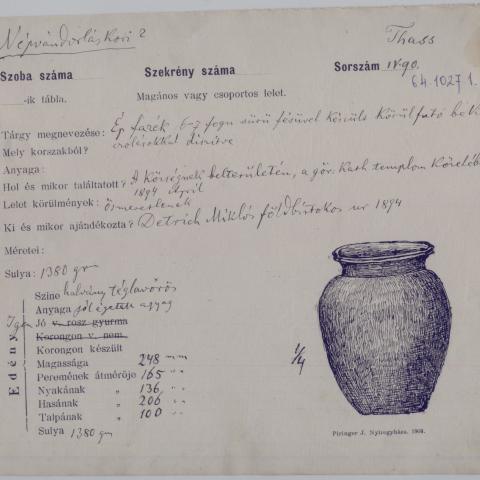 Népvándorláskori?
Thass
Szoba száma
Szekrény száma
Sorszám IV.90.
64.1027 1.
-ik tábla.
Magános vagy csoportos lelet.
Tárgy megnevezése: Ép fazék 6-7 fogu sürü fésüvel készült körülfutó
Mely korszakból? díszitve
Anyaga:
Hol és mikor találtatott? A községnek belterületén, a gör. kath. templom közelében
1894 April
Lelet körülmények: ösmeretlenek
Ki és mikor ajándékozta? Detrich Miklós földbirtokos ur 1894
Méretei:
Sulya: 1380 gr
Edény
Szine halvány téglavörös
Anyaga jól égetett agyag
Igen Jó v. rosz gyurma
Korongon v. nem.
Korongon készült
Magassága 248 mm
Peremének átmérője 165 "
Nyakának " 136 "
Hasának " 206 "
Talpának " 100 "
Sulya 1380 gm
1/4
Piringer J. Nyiregyháza. 1903.